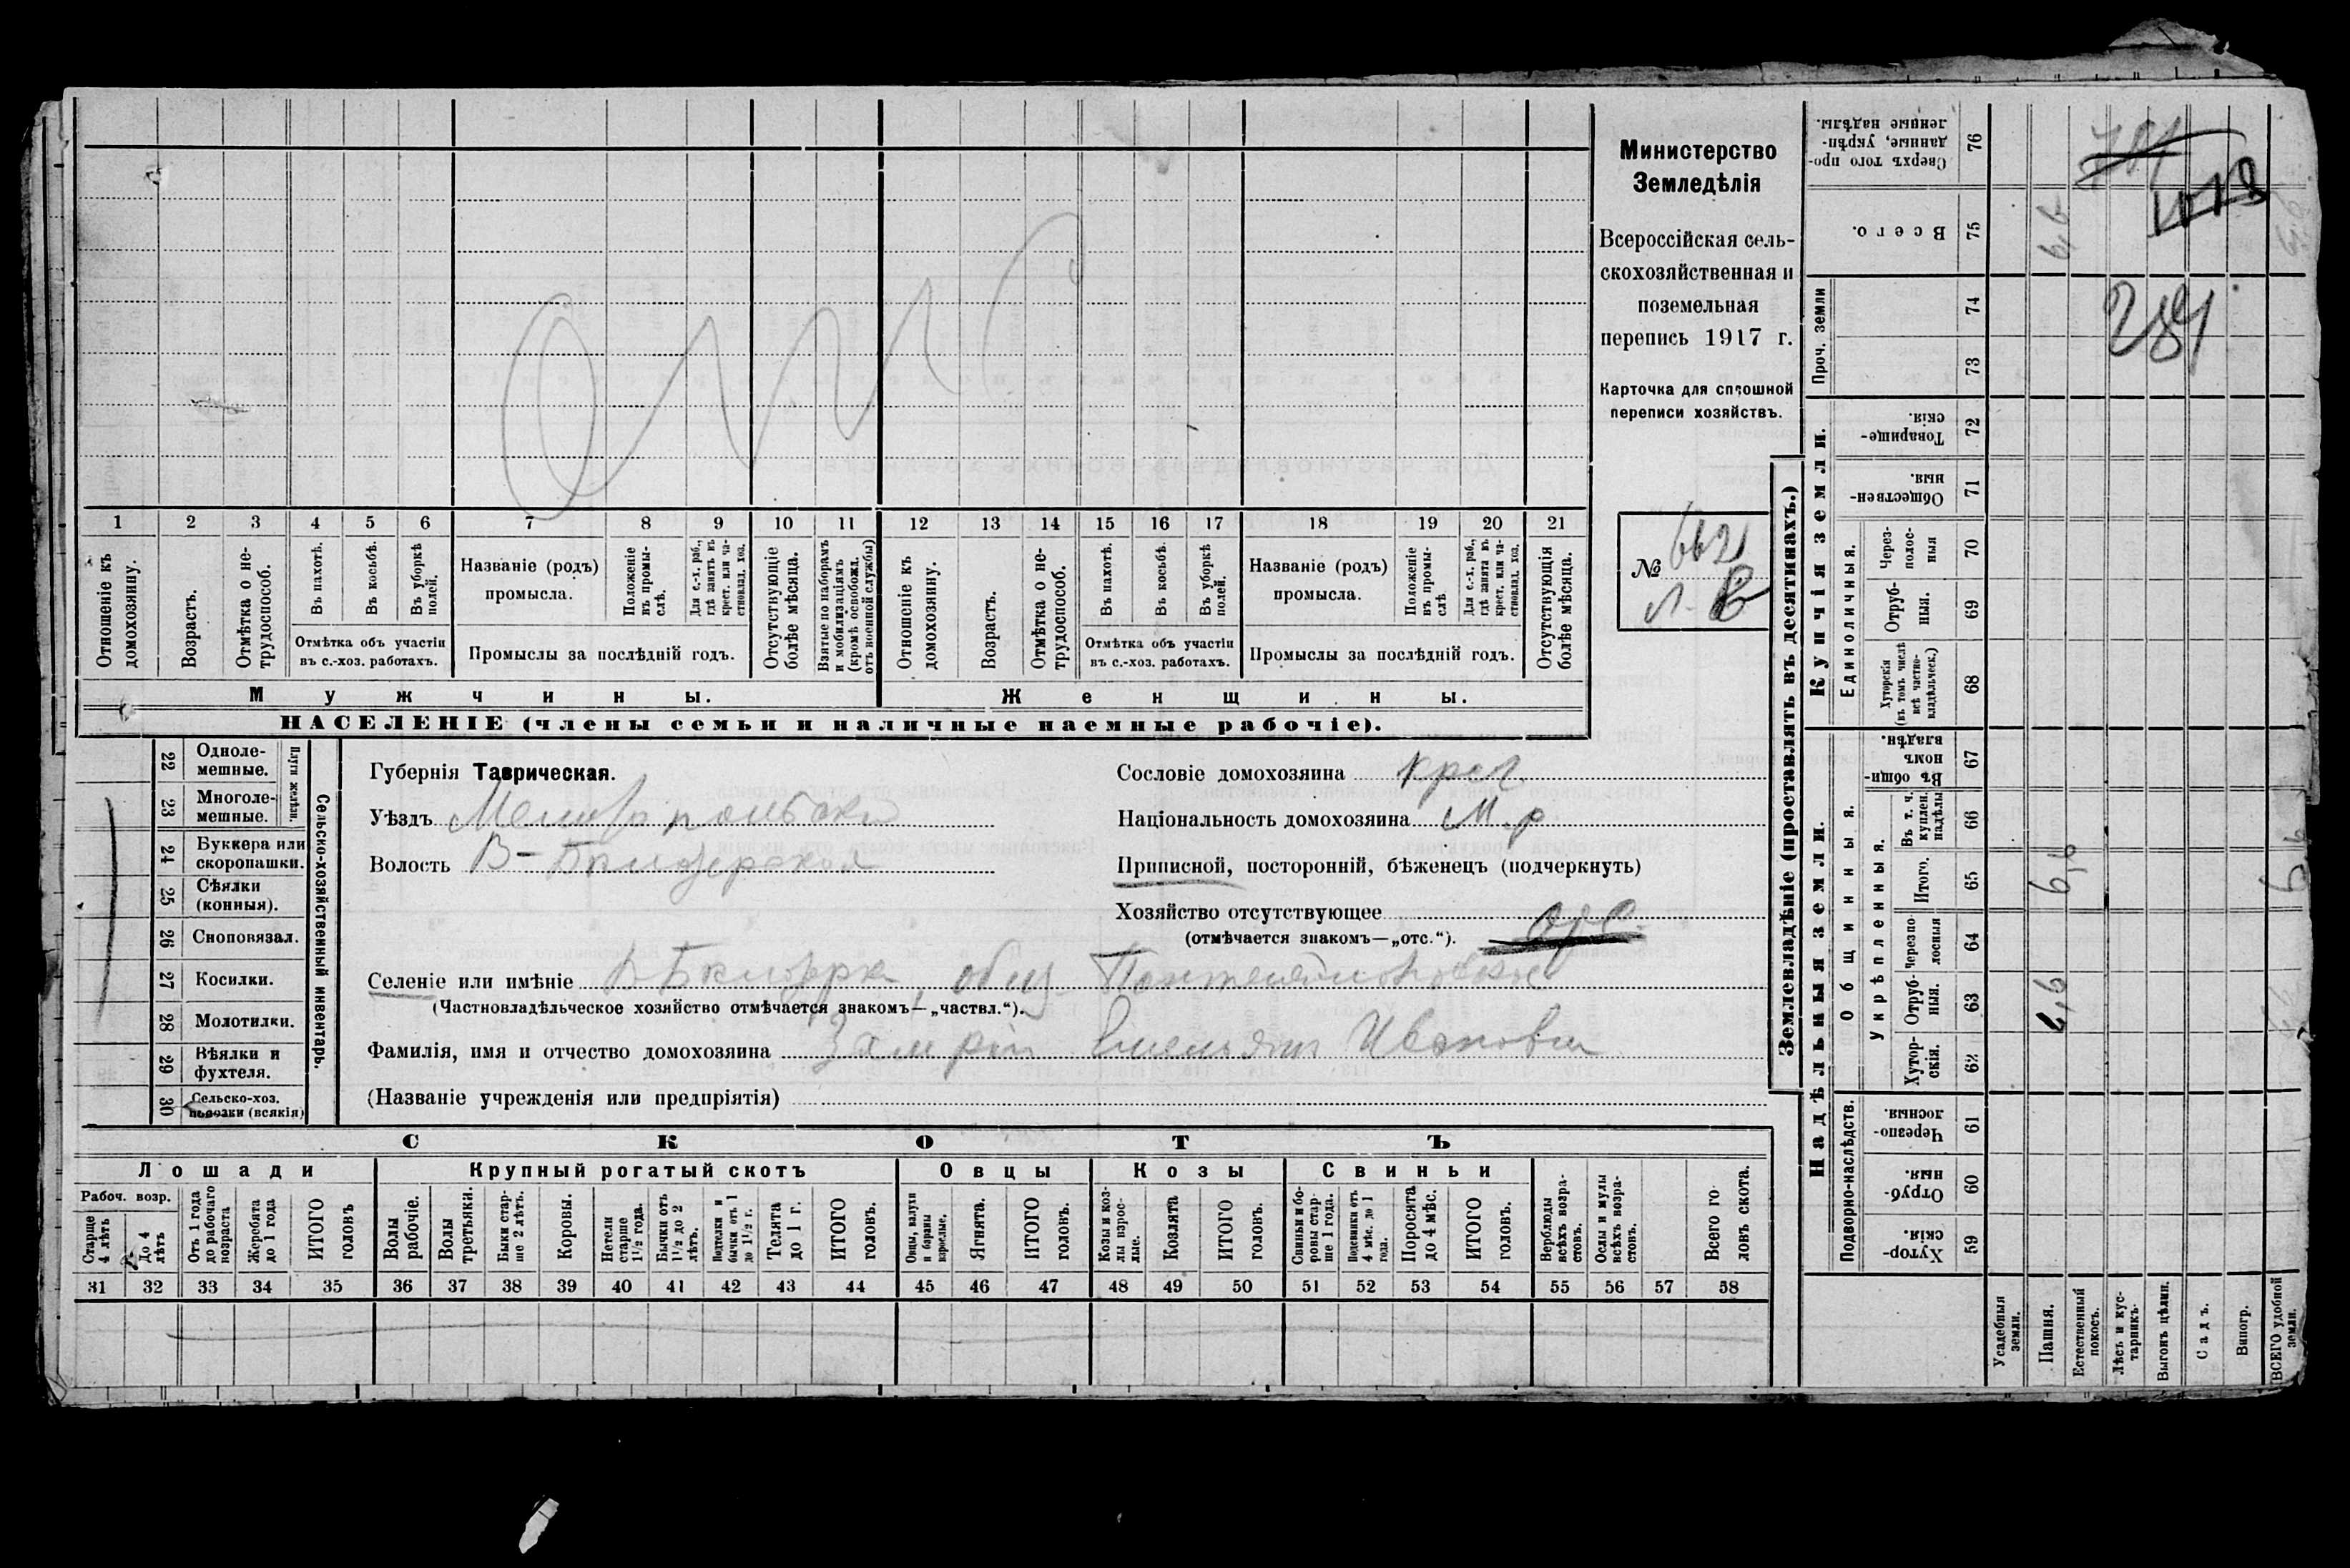 Министерство
Земледѣлія
Всероссійская сель-
скохозяйственная и
поземельная
перепись 1917 г.
Карточка для сплошной
переписи хозяйствъ.
№ 662
1 2 3 4 5 6 7 8 9 10 11 12 13 14 15 16 17 18 19 20 21
Отношеніе къ домохозяину.
Возрастъ.
Отмѣтка о не-трудоспособ.
Въ пахотѣ.
Въ косьбѣ.
Въ уборкѣ полей.
Отмѣтка объ участіи
въ с.-хоз. работахъ.
Названіе (родъ)
промысла.
Положеніе въ промы-слѣ.
Для с.-х. раб., гдѣ занятъ въ крест. или ча-стновлад. хоз.
Промыслы за послѣдній годъ.
Отсутствующіе болѣе мѣсяца.
Взятые по наборамъ и мобилизаціямъ (кромѣ освобожд. отъ военной службы)
Отношеніе къ домохозяину.
Возрастъ.
Отмѣтка о не-трудоспособ.
Въ пахотѣ.
Въ косьбѣ.
Въ уборкѣ полей.
Отмѣтка объ участіи
въ с.-хоз. работахъ.
Названіе (родъ)
промысла.
Положеніе въ промы-слѣ
Для с.-х. раб., гдѣ занята въ крест. или ча-стновлад. хоз.
Промыслы за послѣдній годъ.
Отсутствующія болѣе мѣсяца.
Мужчины. Женщины.
НАСЕЛЕНІЕ (члены семьи и наличные наемные рабочіе).
Сельско-хозяйственный инвентарь.
Плуги желѣзн.
22 Однолемешные.
23 Многолемешные.
24 Буккера или скоропашки.
25 Сѣялки (конныя).
26 Сноповязал.
27 Косилки.
28 Молотилки.
29 Вѣялки и фухтеля.
30 Сельско-хоз. повозки (всякія)
Губернія Таврическая.
Уѣздъ Мелитопольскій
Волость В-Бѣлозерская
Сословіе домохозяина крест.
Національность домохозяина м.р
Приписной, посторонній, бѣженецъ (подчеркнуть)
Хозяйство отсутствующее отс.
(отмѣчается знакомъ—„отс.“).
Селеніе или имѣніе В Бѣлозерка, общ.
(Частновладѣльческое хозяйство отмѣчается знакомъ—„частвл.“).
Фамилія, имя и отчество домохозяина Емельян Иванович
(Названіе учрежденія или предпріятія)
СКОТЪ
Лошади Крупный рогатый скотъ Овцы Козы Свиньи
Рабоч. возр.
Старше 4 лѣтъ
До 4 лѣтъ
Отъ 1 года до рабочаго возраста
Жеребята до 1 года
ИТОГО головъ
Волы рабочіе.
Волы третьяки.
Быки стар-ше 2 лѣтъ.
Коровы.
Нетели старше 1½ года.
Бычки отъ 1½ до 2 лѣтъ.
Подтелки и бычки отъ 1 до 1½ г.
Телята до 1 г.
ИТОГО головъ.
Овцы, валухи и бараны взрослые.
Ягнята.
ИТОГО головъ.
Козы и коз-лы взрос-лые.
Козлята
ИТОГО головъ.
Свиньи и бо-ровы стар-ше 1 года.
Подсвинки отъ 4 мѣс. до 1 года.
Поросята до 4 мѣс.
ИТОГО головъ.
Верблюды всѣхъ возра-стовъ.
Ослы и мулы всѣхъ возра-стовъ.
Всего го-ловъ скота.
31 32 33 34 35 36 37 38 39 40 41 42 43 44 45 46 47 48 49 50 51 52 53 54 55 56 57 58
Землевладѣніе (проставлять въ десятинахъ.)
Купчія земли.
Надѣльныя земли.
Проч. земли
Единоличныя.
Общинныя.
Укрѣпленныя.
Подворно-наслѣдств.
Сверхъ того про-данные, укрѣп-ленные надѣлы. 76
Всего. 75 6,6
74
73
Товарище-скія. 72
Обществен-ныя. 71
Через-полос-ныя 70
Отруб-ныя. 69
Хуторскія (въ томъ числѣ всѣ частно-владѣльческ.) 68
Въ общин-номъ владѣн. 67
Въ т. ч. куплен. надѣлы 66
Итого. 65 6,6
Черезпо-лосныя 64
Отруб-ныя. 63
Хутор-скія. 62
Черезпо-лосныя. 61
Отруб-ныя. 60
Хутор-скія. 59
Усадебныя земли.
Пашня.
Естественный покосъ.
Лѣсъ и кус-тарникъ.
Выгонъ цѣлин.
Садъ.
Виногр.
ВСЕГО удобной земли.
281